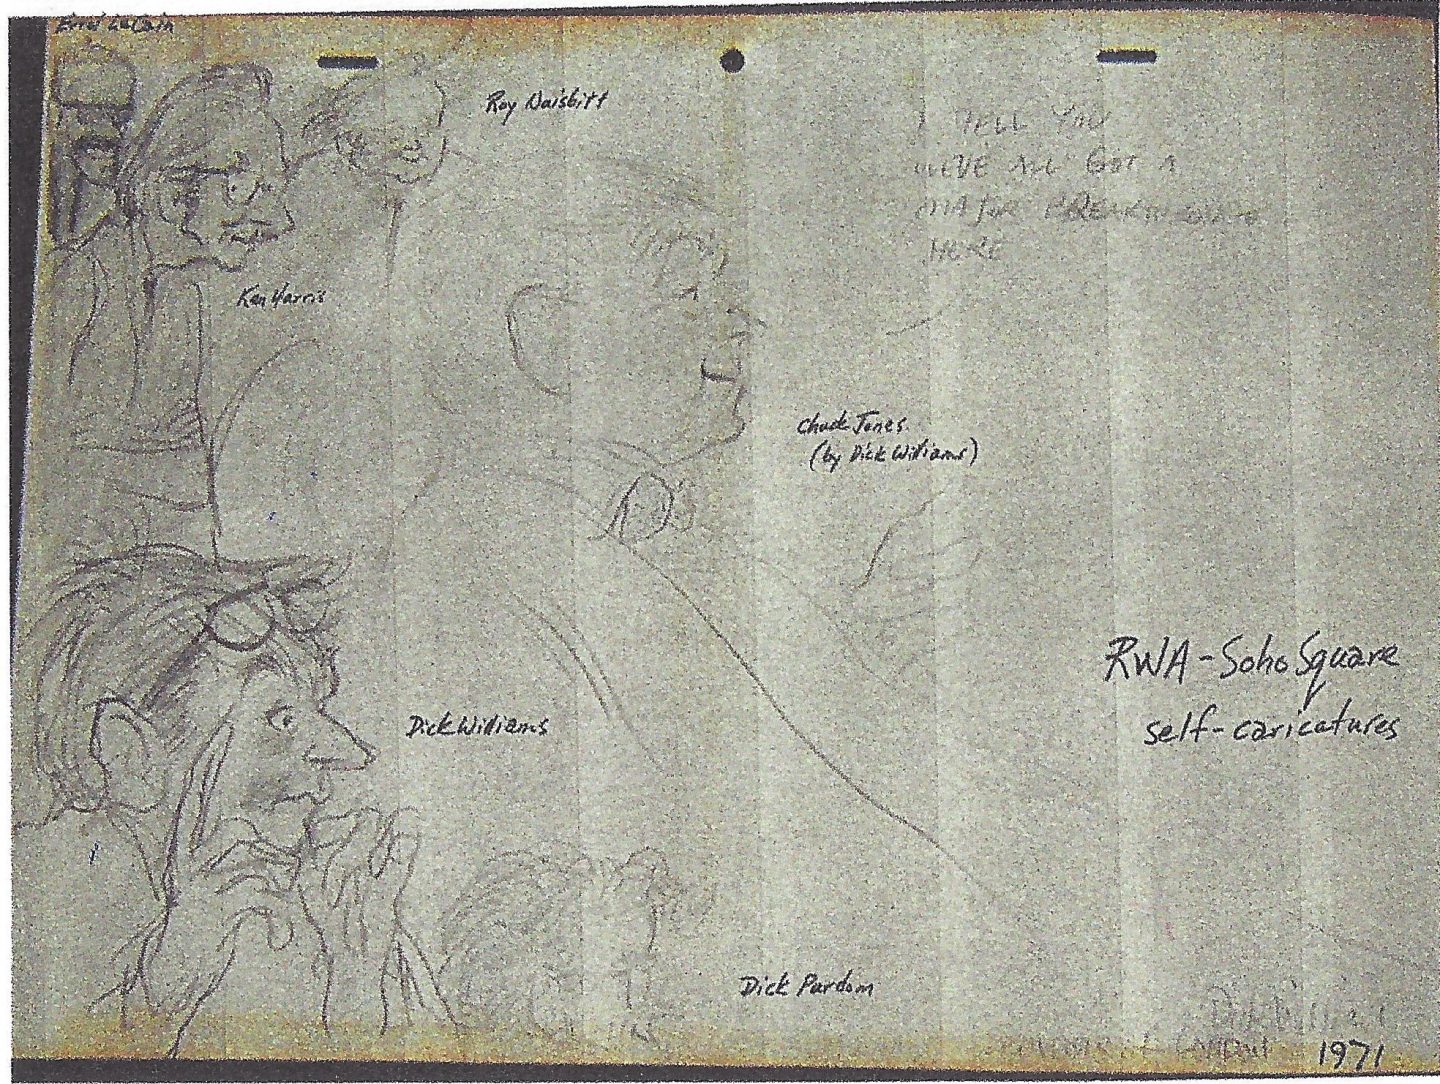 Errol LeCain
Roy Naisbitt
I TELL YOU
WE'VE ALL GOT A
MAJOR BREAKTHROUGH
HERE
Ken Harris
Chuck Jones
(by Dick Williams)
RWA - Soho Square
self-caricatures
Dick Williams
Dick Purdom
Dick Williams
1971